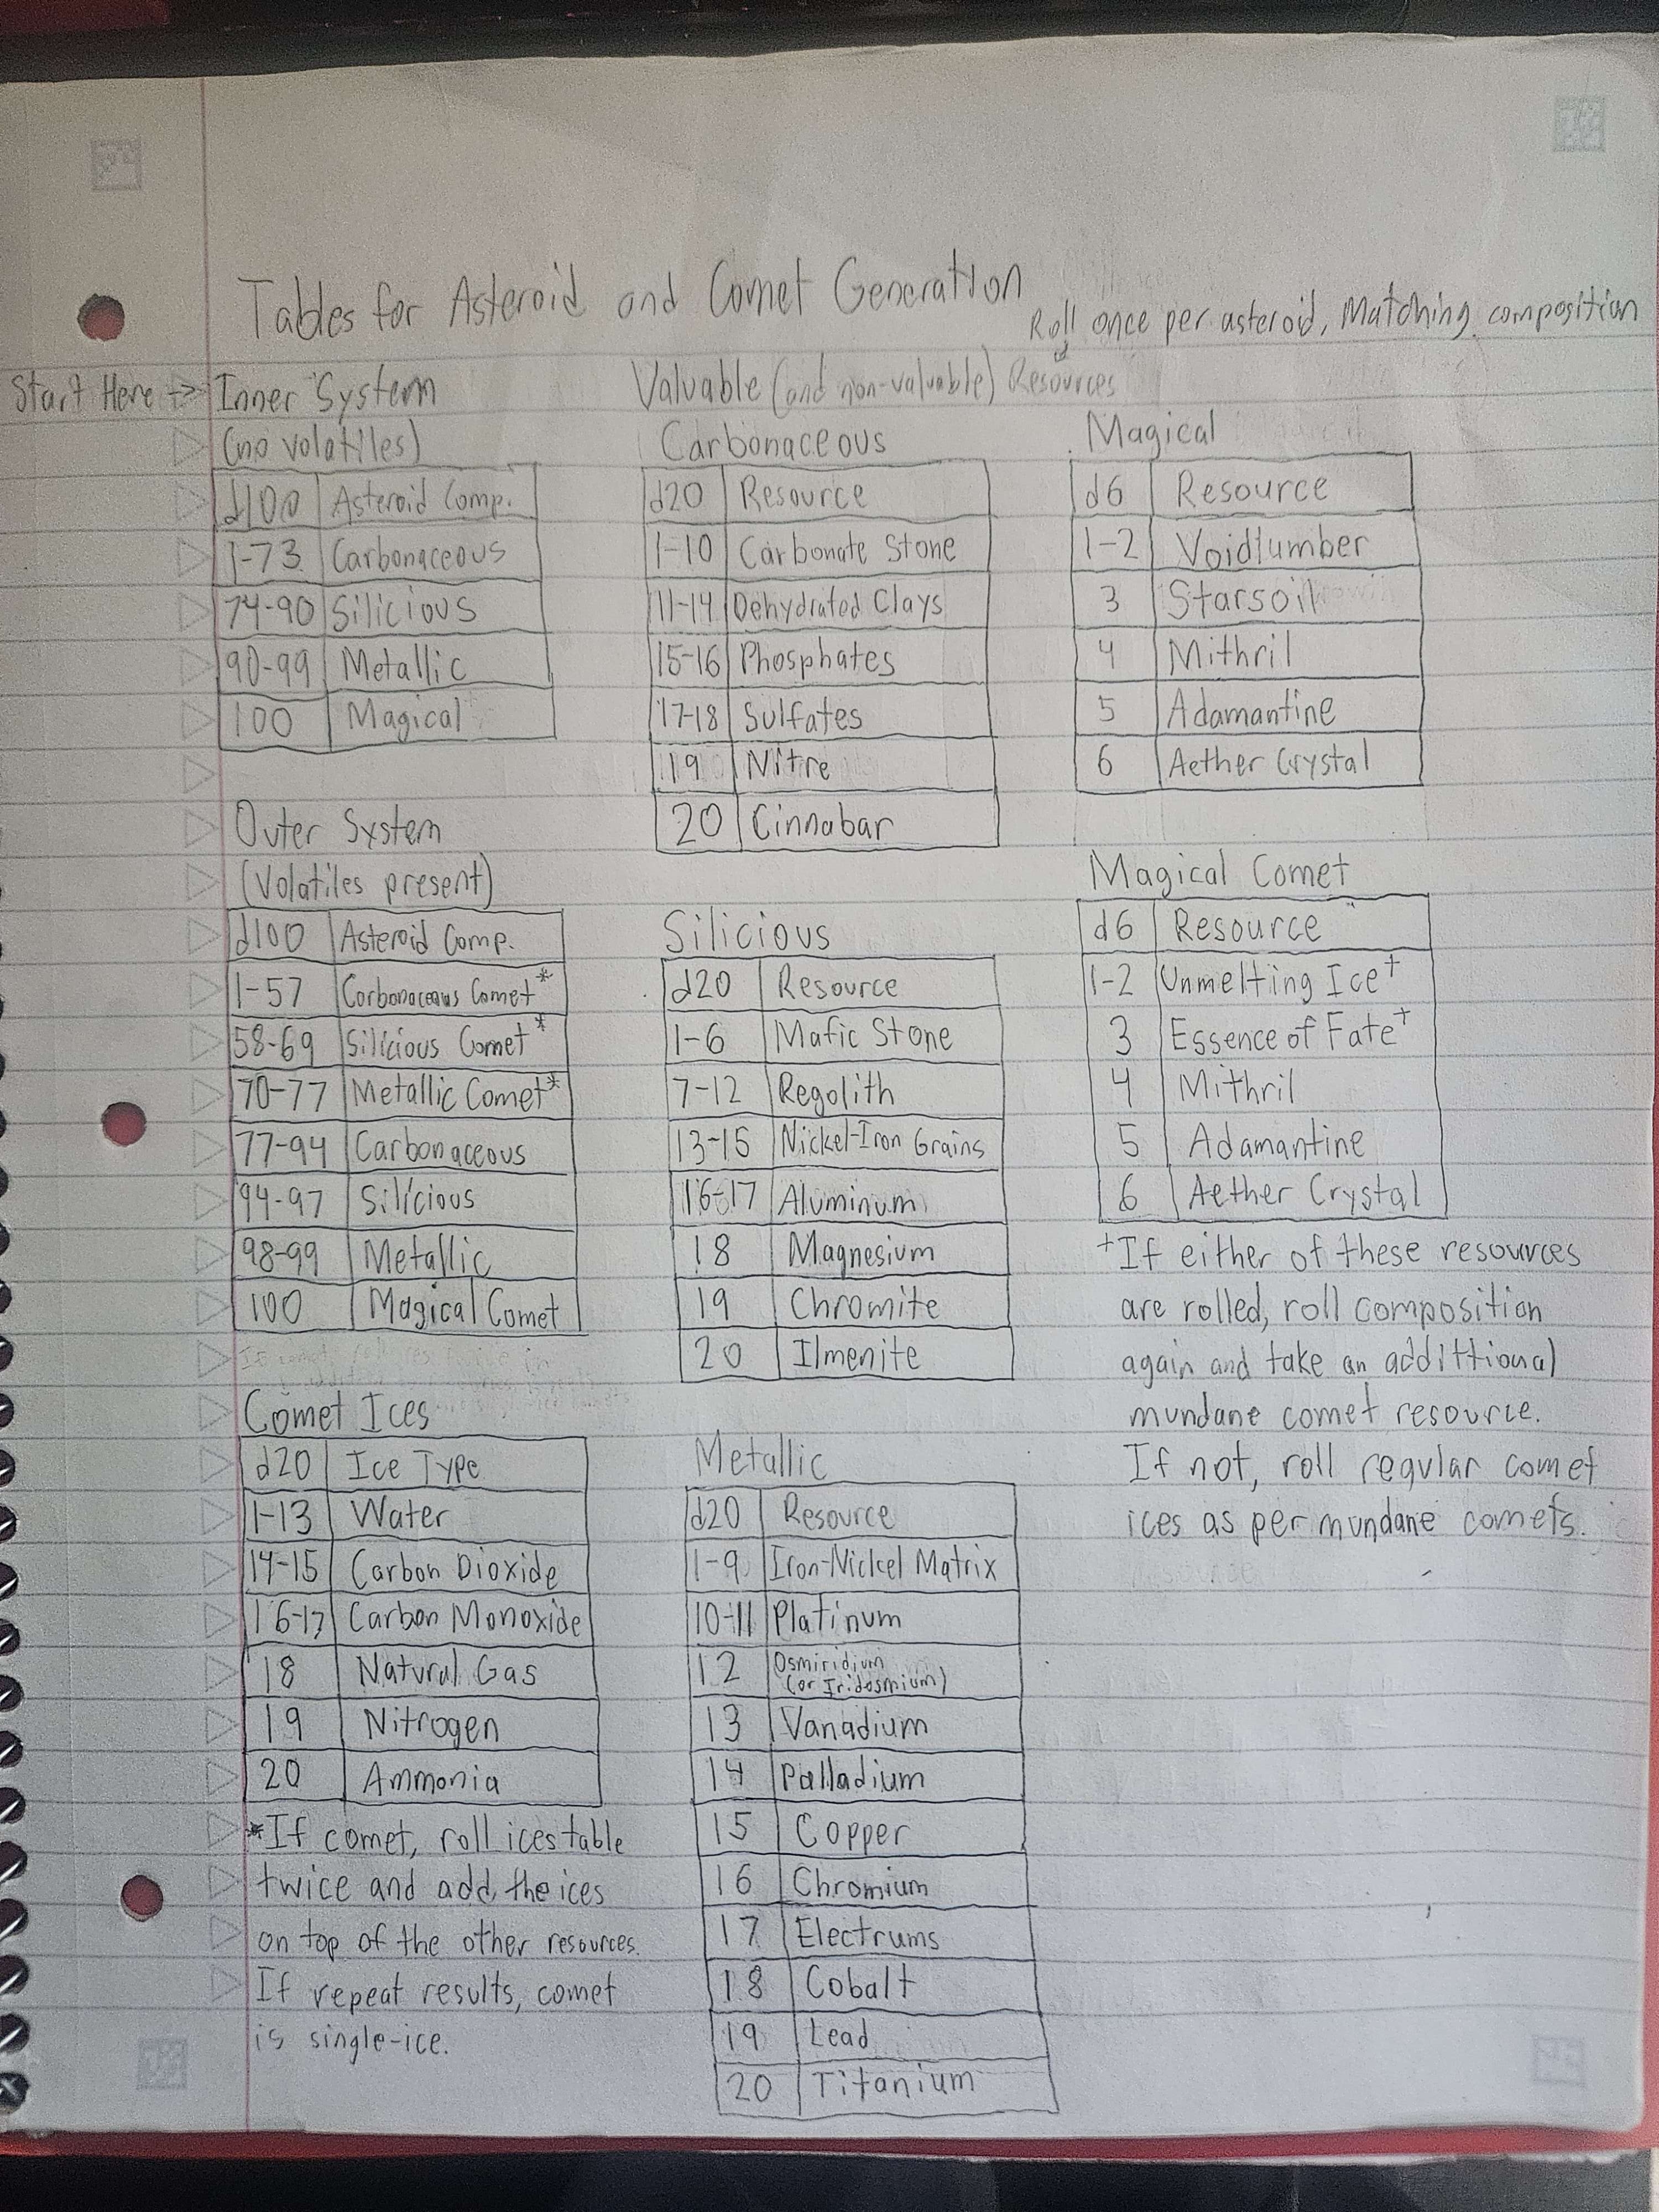 Tables for Asteroid and Comet Generation
Roll once per asteroid, Matching composition
Start Here → Inner System
(no volatiles)
d100 Asteroid Comp.
1-73 Carbonaceous
74-90 Silicious
90-99 Metallic
100 Magical
Outer System
(Volatiles present)
d100 Asteroid Comp.
1-57 Carbonaceous Comet*
58-69 Silicious Comet*
70-77 Metallic Comet*
77-94 Carbonaceous
94-97 Silicious
98-99 Metallic
100 Magical Comet
Comet Ices
d20 Ice Type
1-13 Water
14-15 Carbon Dioxide
16-17 Carbon Monoxide
18 Natural Gas
19 Nitrogen
20 Ammonia
*If comet, roll ices table
twice and add the ices
on top of the other resources.
If repeat results, comet
is single-ice.
Valuable (and non-valuable) Resources
Carbonaceous
d20 Resource
1-10 Carbonate Stone
11-14 Dehydrated Clays
15-16 Phosphates
17-18 Sulfates
19 Nitre
20 Cinnabar
Silicious
d20 Resource
1-6 Mafic Stone
7-12 Regolith
13-15 Nickel-Iron Grains
16-17 Aluminum
18 Magnesium
19 Chromite
20 Ilmenite
Metallic
d20 Resource
1-9 Iron-Nickel Matrix
10-11 Platinum
12 Osmiridium
(or Iridosmium)
13 Vanadium
14 Palladium
15 Copper
16 Chromium
17 Electrums
18 Cobalt
19 Lead
20 Titanium
Magical
d6 Resource
1-2 Voidlumber
3 Starsoil
4 Mithril
5 Adamantine
6 Aether Crystal
Magical Comet
d6 Resource
1-2 Unmelting Ice†
3 Essence of Fate†
4 Mithril
5 Adamantine
6 Aether Crystal
†If either of these resources
are rolled, roll composition
again and take an addittional
mundane comet resource.
If not, roll regular comet
ices as per mundane comets.